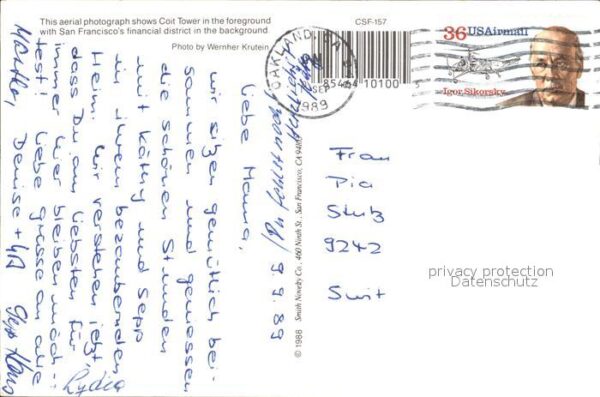 This aerial photograph shows Coit Tower in the foreground
with San Francisco's financial district in the background.
Photo by Wernher Krutein
CSF-157
OAKLAND, CA
SEP
1989
85464 10100 5
36 USAirmail
Igor Sikorsky
9.9.89
Liebe Mama,
wir sitzen gemütlich bei-
sammen und geniessen
die schönen Stunden
mit Käthy und Sepp
in ihrem bezaubernden
Heim. Wir verstehen jetzt,
dass Du am liebsten für
immer hier bleiben möch-
test! Liebe Grüsse an alle
Denise + Uo
Lydia
Sepp
© 1988 Smith Novelty Co., 460 Ninth St., San Francisco, CA
Frau
Pia
Stutz
9242
privacy protection
Datenschutz